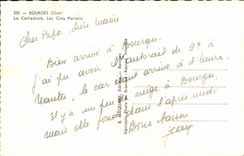 320 - BOURGES (Cher)
La Cathédrale. Les Cinq Portails
Cher Papa, chère Mamie
Bien arrivé à Bourges.
j'ai pu avoir l'autorail de 9h à
Nantes, le car étant arrivé à l'heure.
Il y a un peu de neige à Bourges
mais elle fond dans l'après midi
Bons baisers
Jean